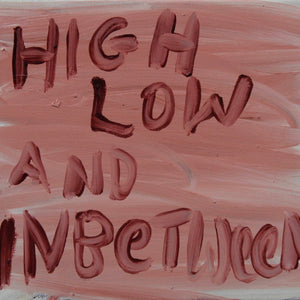 HIGH
LOW
AND
INBeTWeeN